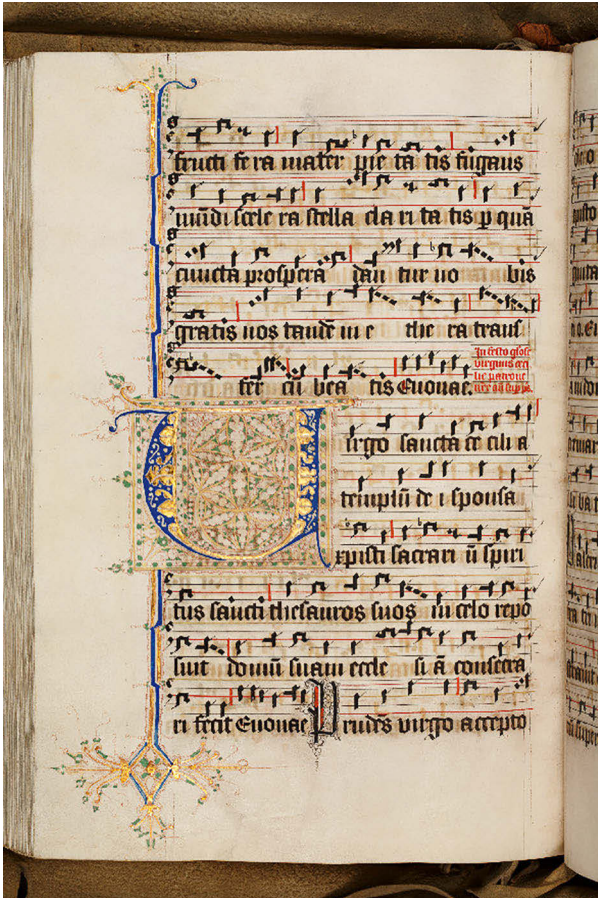 fructi fe ra mater pie ta tis fugans
mūdi scele ra stella cla ri ta tis ꝑ quā
cuncta prospera dan tur no bis
gratis nos tandē in e the ra trans
fer cū bea tis Euouae.
In festo glōse
virginis ceci
lie patrone
Uirgo sancta ce cili a
templū de i sponsa
xpisti sacrari ū spiri
tus sancti thesauros suos in celo repo
suit domū suam eccle si ā consecra
ri fecit Euouae Prudēs virgo accepto